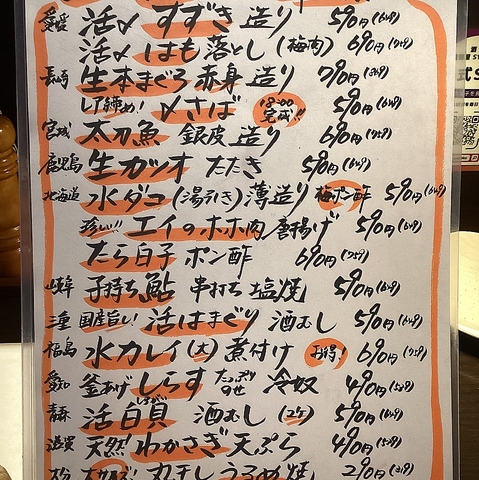 愛媛 活〆 すずき 造り 590円(649)
活〆 はも 落とし(梅肉) 690円(759)
長崎 生本まぐろ 赤身 造り 790円(869)
レア締め! 〆さば 18:00完成!! 590円(649)
宮城 太刀魚 銀皮 造り 690円(759)
鹿児島 生カツオ たたき 590円(649)
北海道 水ダコ(湯引き)薄造り 梅ポン酢 590円(649)
珍しい!! エイのホホ肉 唐揚げ 590円(649)
たら白子 ポン酢 690円(759)
岐阜 子持ち鮎 串打ち 塩焼 590円(649)
三重 国産旨い! 活はまぐり 酒むし 590円(649)
福島 水カレイ(大)煮付け お得! 690円(759)
愛知 釜あげしらす たっぷりのせ 冷奴 490円(539)
青森 活 白貝 酒むし (2ケ) 590円(649)
滋賀 天然! わかさぎ 天ぷら 490円(539)
大分 大サイズ! 丸干しうるめ焼 290円(319)